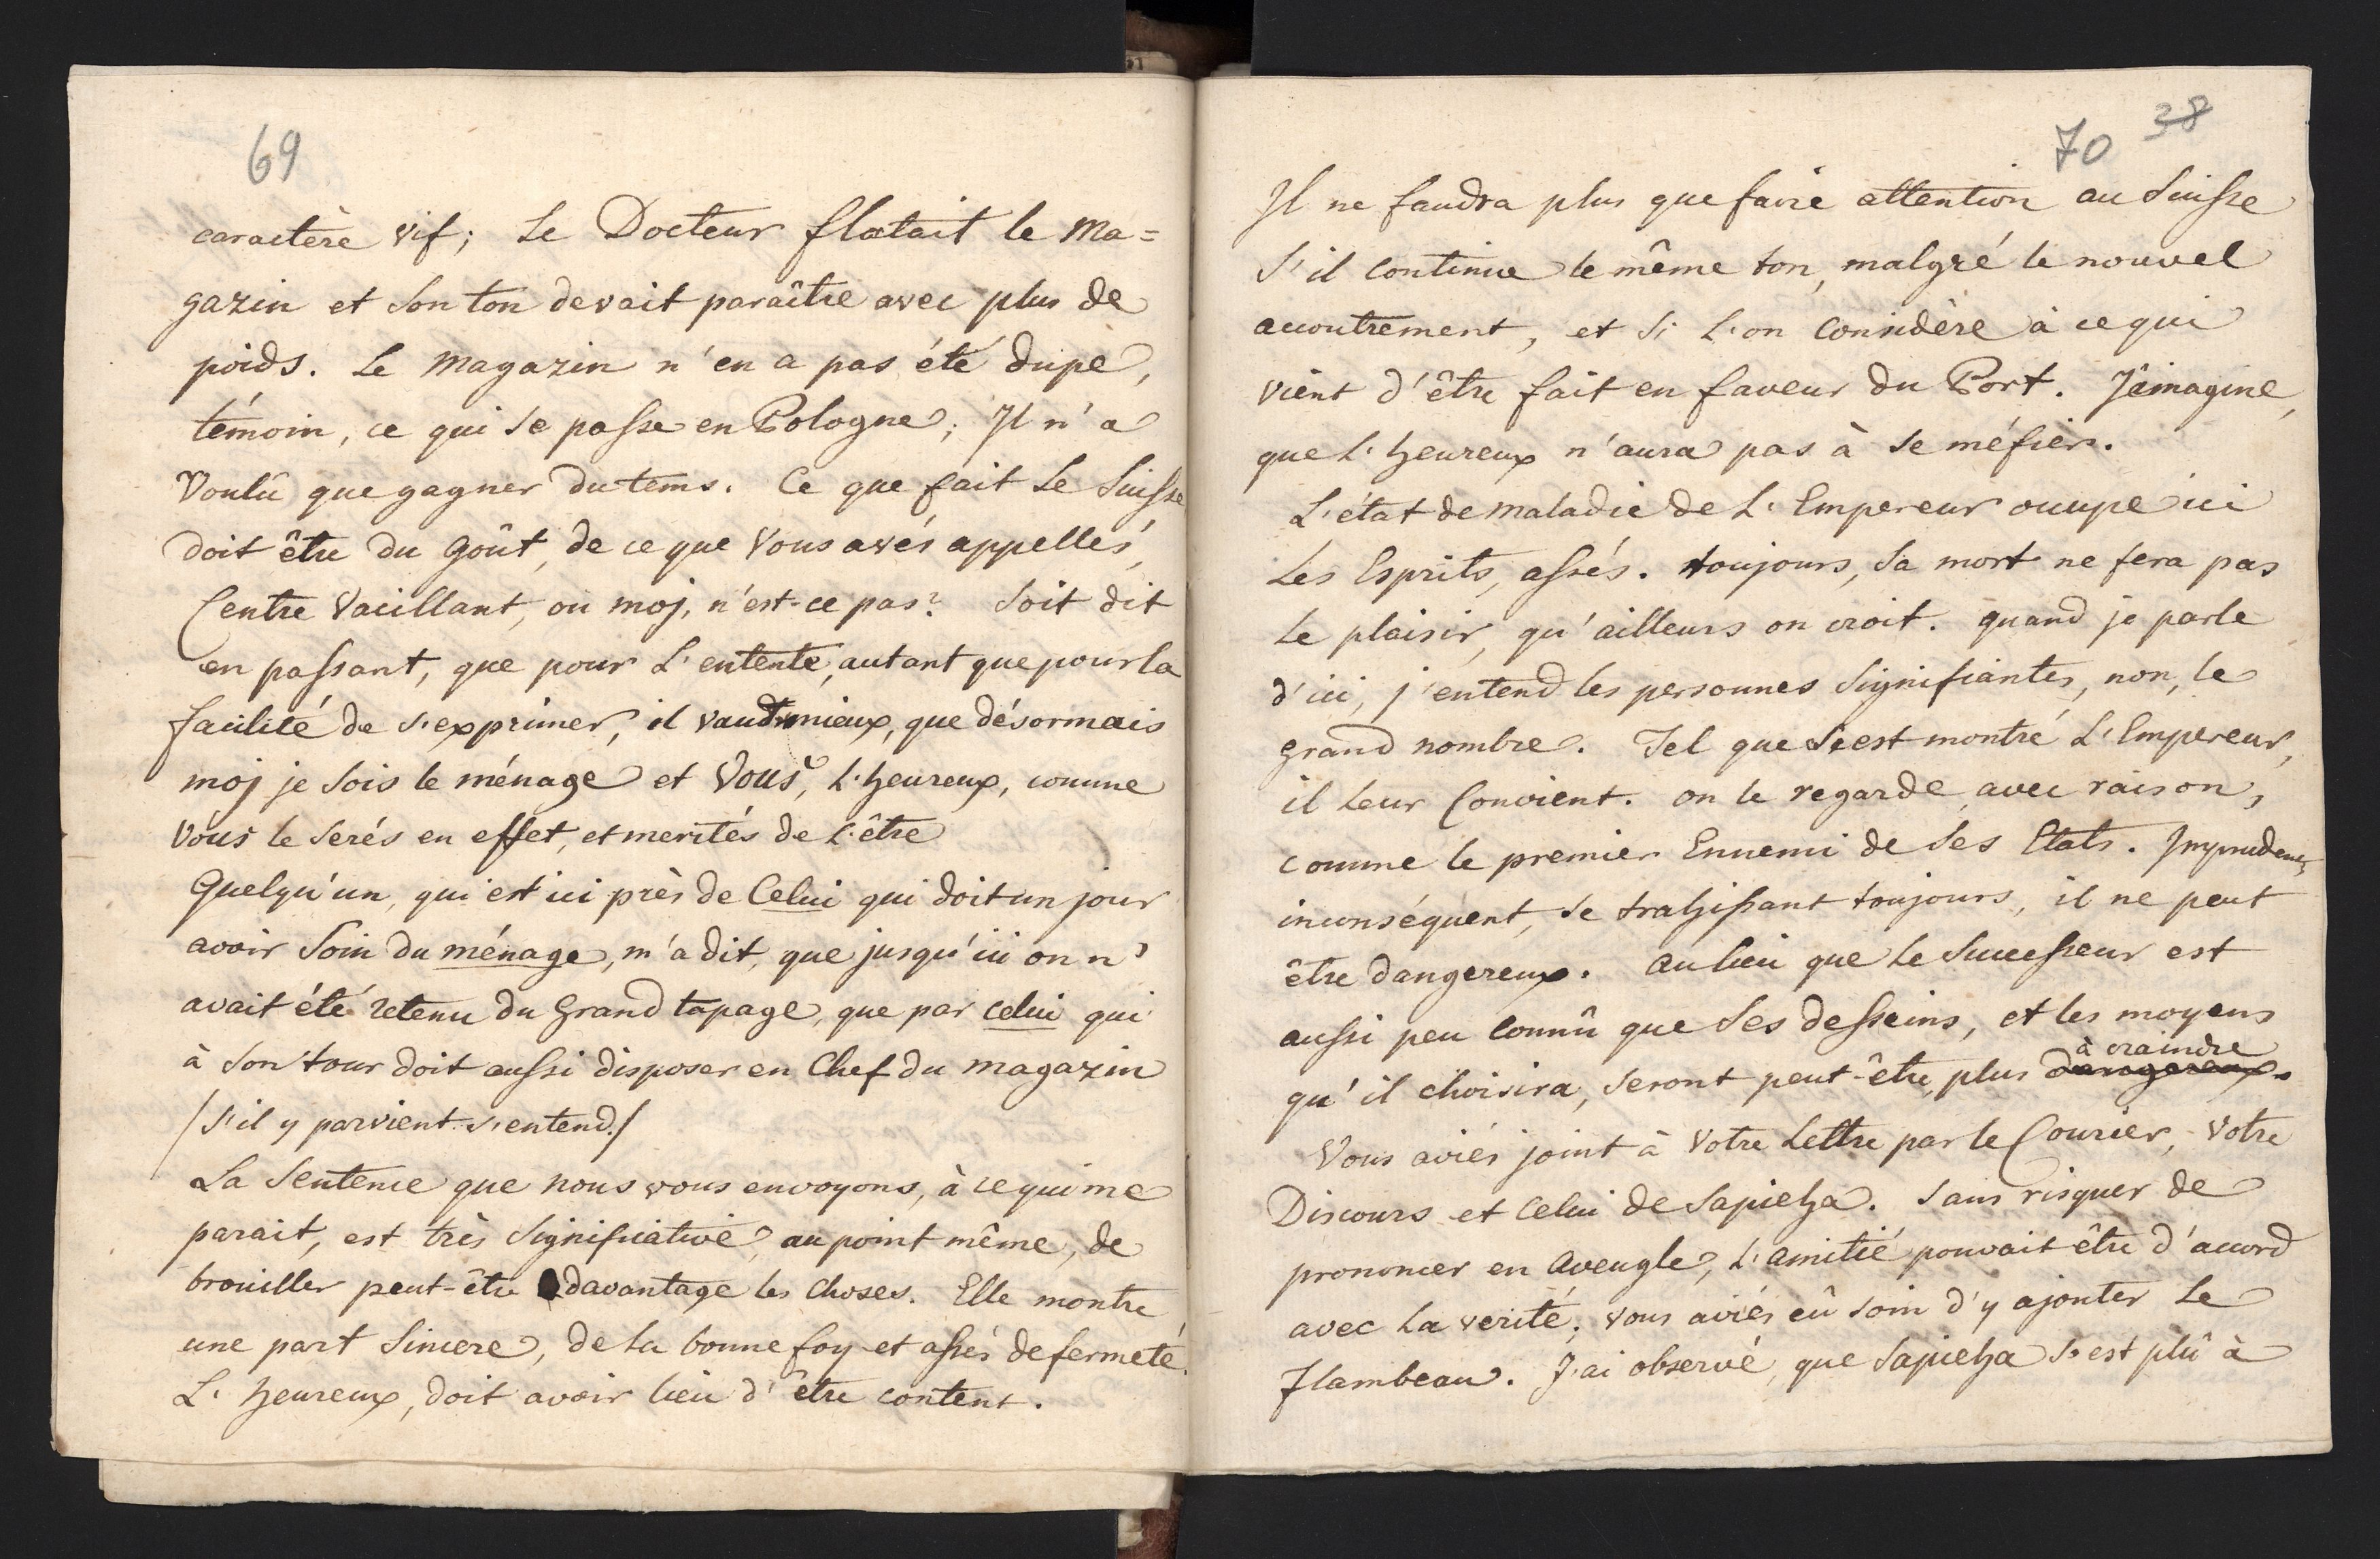 69
caractère vif; Le Docteur flatait le Ma=
gazin et Son ton devait paraître avec plus de
poids. Le Magazin n'en a pas été dupe,
témoin, ce qui Se passe en Pologne; Il n'a
Voulû que gagner du tems. Ce que fait Le Suisse
doit être du Goût, de ce que Vous avés appellés,
Centre Vacillant, ou moj, n'est-ce pas? Soit dit
en passant, que pour L'entente, autant que pour la
facilité de s'exprimer, il vaudra mieux, que désormais
moj je Sois le ménage et Vous, L'heureux, comme
Vous le Serés en effet, et merités de L'être
Quelqu'un, qui est ici près de Celui qui doit un jour
avoir Soin du ménage, m'a dit, que jusqu'ici on n'
avait été retenu du Grand tapage, que par celui qui
à Son tour doit aussi disposer en Chef du magazin
/S'il y parvient s'entend./
La Sentence que nous vous envoyons, à ce qui me
parait, est très Significative, au point même, de
brouiller peut-être davantage les Choses. Elle montre
une part Sincere, de la bonne foy et assés de fermeté.
L'heureux, doit avoir lieu d'être content.
70 38
Il ne faudra plus que faire attention au Suisse
S'il continue le même ton, malgré le nouvel
accoutrement, et Si L'on Considère à ce qui
vient d'être fait en faveur du Port. J'imagine,
que L'heureux n'aura pas à Se méfier.
L'état de maladie de L'Empereur occupe ici
Les Esprits, assés. toujours, Sa mort ne fera pas
Le plaisir, qu'ailleurs on croit. quand je parle
d'ici, j'entend les personnes Signifiantes, non, le
grand nombre. Tel que S'est montré L'Empereur,
il leur Convient. on le regarde, avec raison,
comme le premier Ennemi de Ses Etats. Imprudent,
inconséquent, Se trahissant toujours, il ne peut
être dangereux. au lieu que Le Successeur est
aussi peu connû que Ses desseins, et les moyens
à craindre
qu'il choisira, Seront peut-être, plus dangereux.
Vous aviés joint à Votre Lettre par le Courier, Votre
Discours et Celui de Sapieha. Sans risquer de
prononcer en aveugle, L'amitié pouvait être d'accord
avec La verité; vous aviés eû soin d'y ajouter Le
Flambeau. J'ai observé, que Sapieha S'est plû à